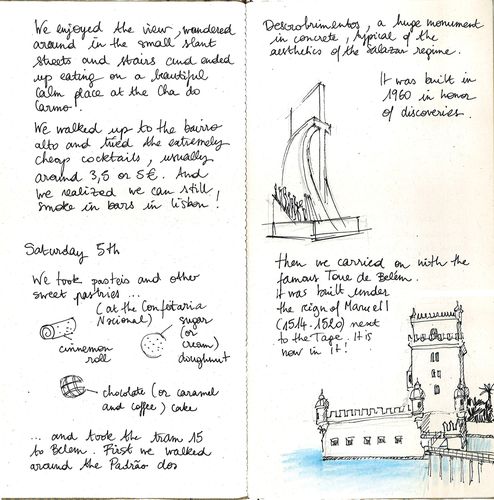 We enjoyed the view, wandered
around in the small slant
streets and stairs and ended
up eating on a beautiful
calm place at the Cha do
Carmo.
We walked up to the bairro
alto and tried the extremely
cheap cocktails, usually
around 3,5 or 5€. And
we realized we can still
smoke in bars in Lisbon!
Saturday 5th
We took pasteis and other
sweet pastries ...
(at the Confitaria
Nacional)
cinnemon
roll
sugar
(or
cream)
doughnut
chocolate (or caramel
and coffee) cake
... and took the tram 15
to Belem. First we walked
around the Padrão dos
Descobrimentos, a huge monument
in concrete, typical of the
aesthetics of the Salazar regime.
It was built in
1960 in honor
of discoveries.
Then we carried on with the
famous Tour de Belém.
It was built under
the reign of Manuel I
(1514-1520) next
to the Tage. It is
now in it!